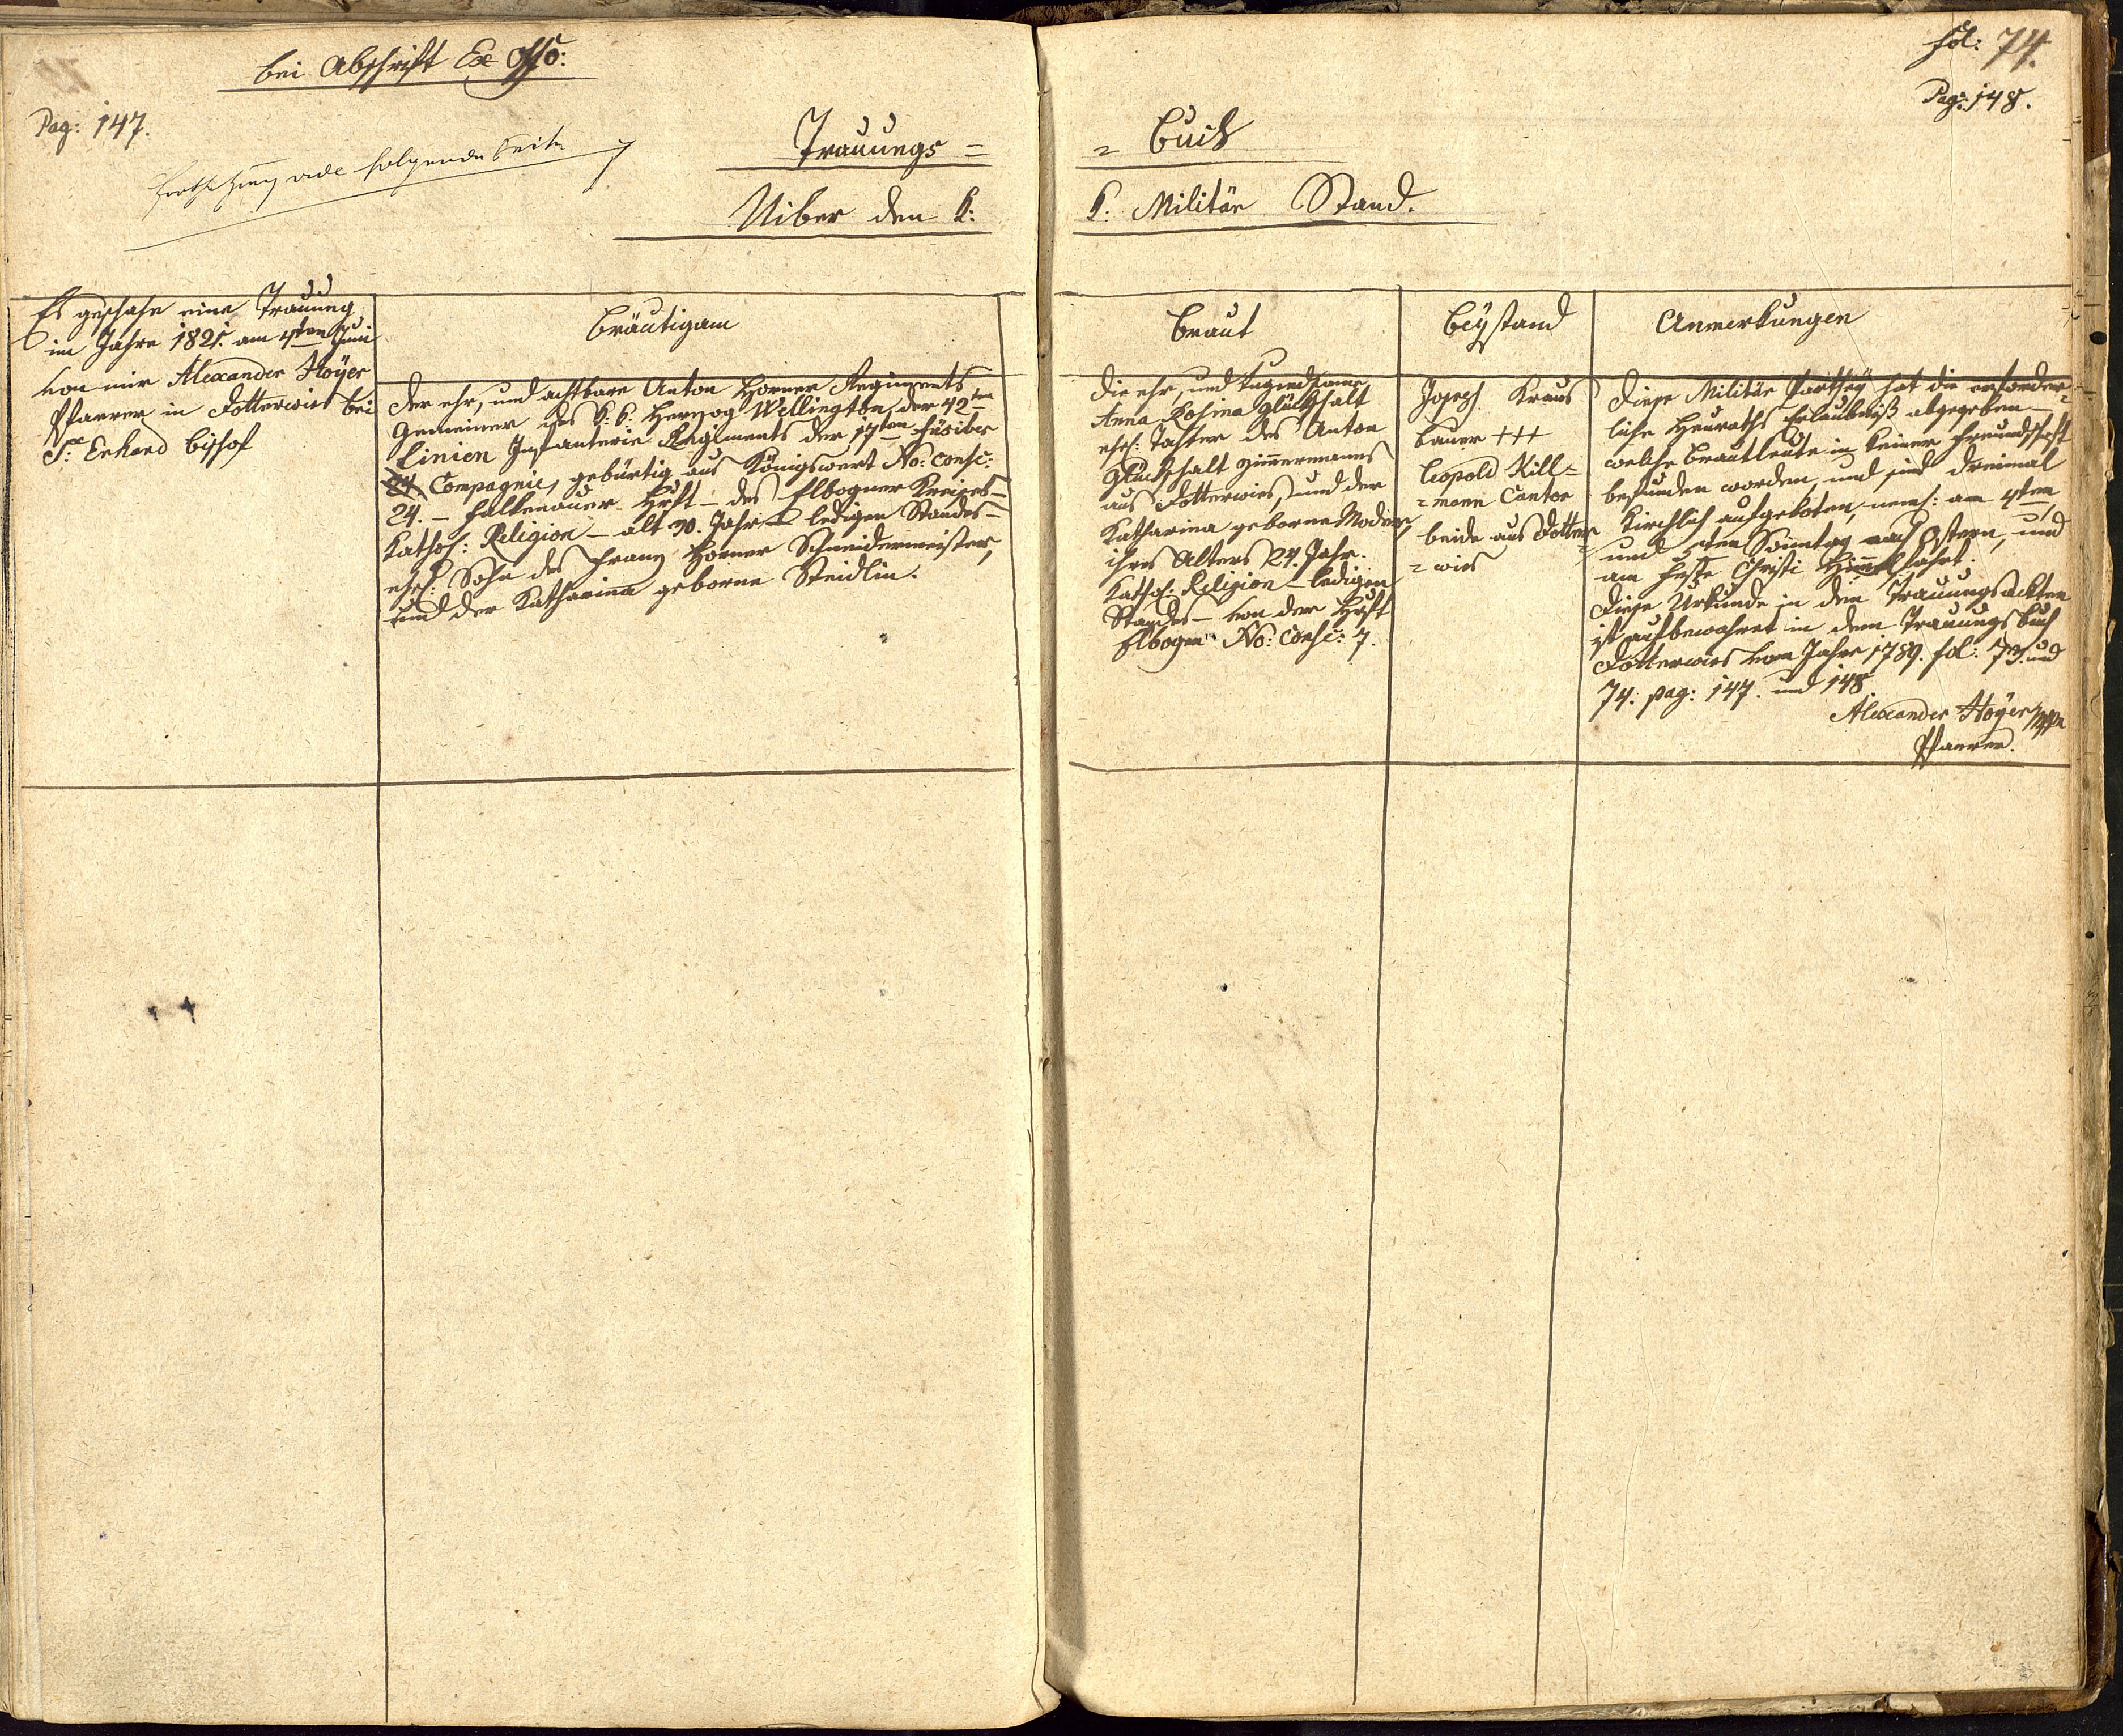 bei Abschrift Ex Offo:
Pag: 147.
Fortsetzung vide folgende Seite 7
Trauungs =
Uiber den k:
Es geschahe eine Trauung
im Jahre 1821. am 4ten Juni
von mir Alexander Höyer
Pfarrer in Dotterwies bei
St: Erhard bischof
Bräutigam
Der ehr, und achtbare Anton Horner Regiments
Gemeiner des k: k: Herzog Wellington, der 42ten
Linien Infanterie Regiments der 17ten Füsilier
Compagnie, gebürtig aus Königswert No: consc:
24. – Falkenauer Hrft – des Elbogner Kreises –
Kathol: Religion – alt 30. Jahr – ledigen Standes –
ehel: Sohn des Franz Horner Schneidermeister,
und der Katharina geborne Steidlin.
fol: 74.
Pag: 148.
= Buch
k: Militär Stand.
Braut
Die ehr, und tugendsame
Anna Rosina Glückhsalt
ehel: Tochter des Anton
Glückhsalt Zimmermanns
aus Dotterwies, und der
Katharina geborne
ihres Alters 24. Jahr.
Kathol: Religion – ledigen
Standes – von der Hrft
Elbogen No: consc: 7.
Beÿstand
Joseph Kraus
Bauer +++
Leopold Kill=
=mann Cantor
beide aus Dotter
=wies
Anmerkungen
Diese Militär Parthey hat die erforder=
liche Heuraths Erlaubniß abgegeben –
welche Brautleute in keiner Freundschaft
befunden worden, und sind dreimal
kirchlich aufgeboten, neml: am 4ten
und 5ten Sonntag nach Ostern, und
am Feste Christi Himmelfahrt.
Diese Urkunde in den Trauungsackten
ist aufbewahret in dem Trauungs Buch
Dotterwies vom Jahre 1789. fol: 73. und
74. pag: 147. und 148
Alexander Höyer mpa
Pfarrer.